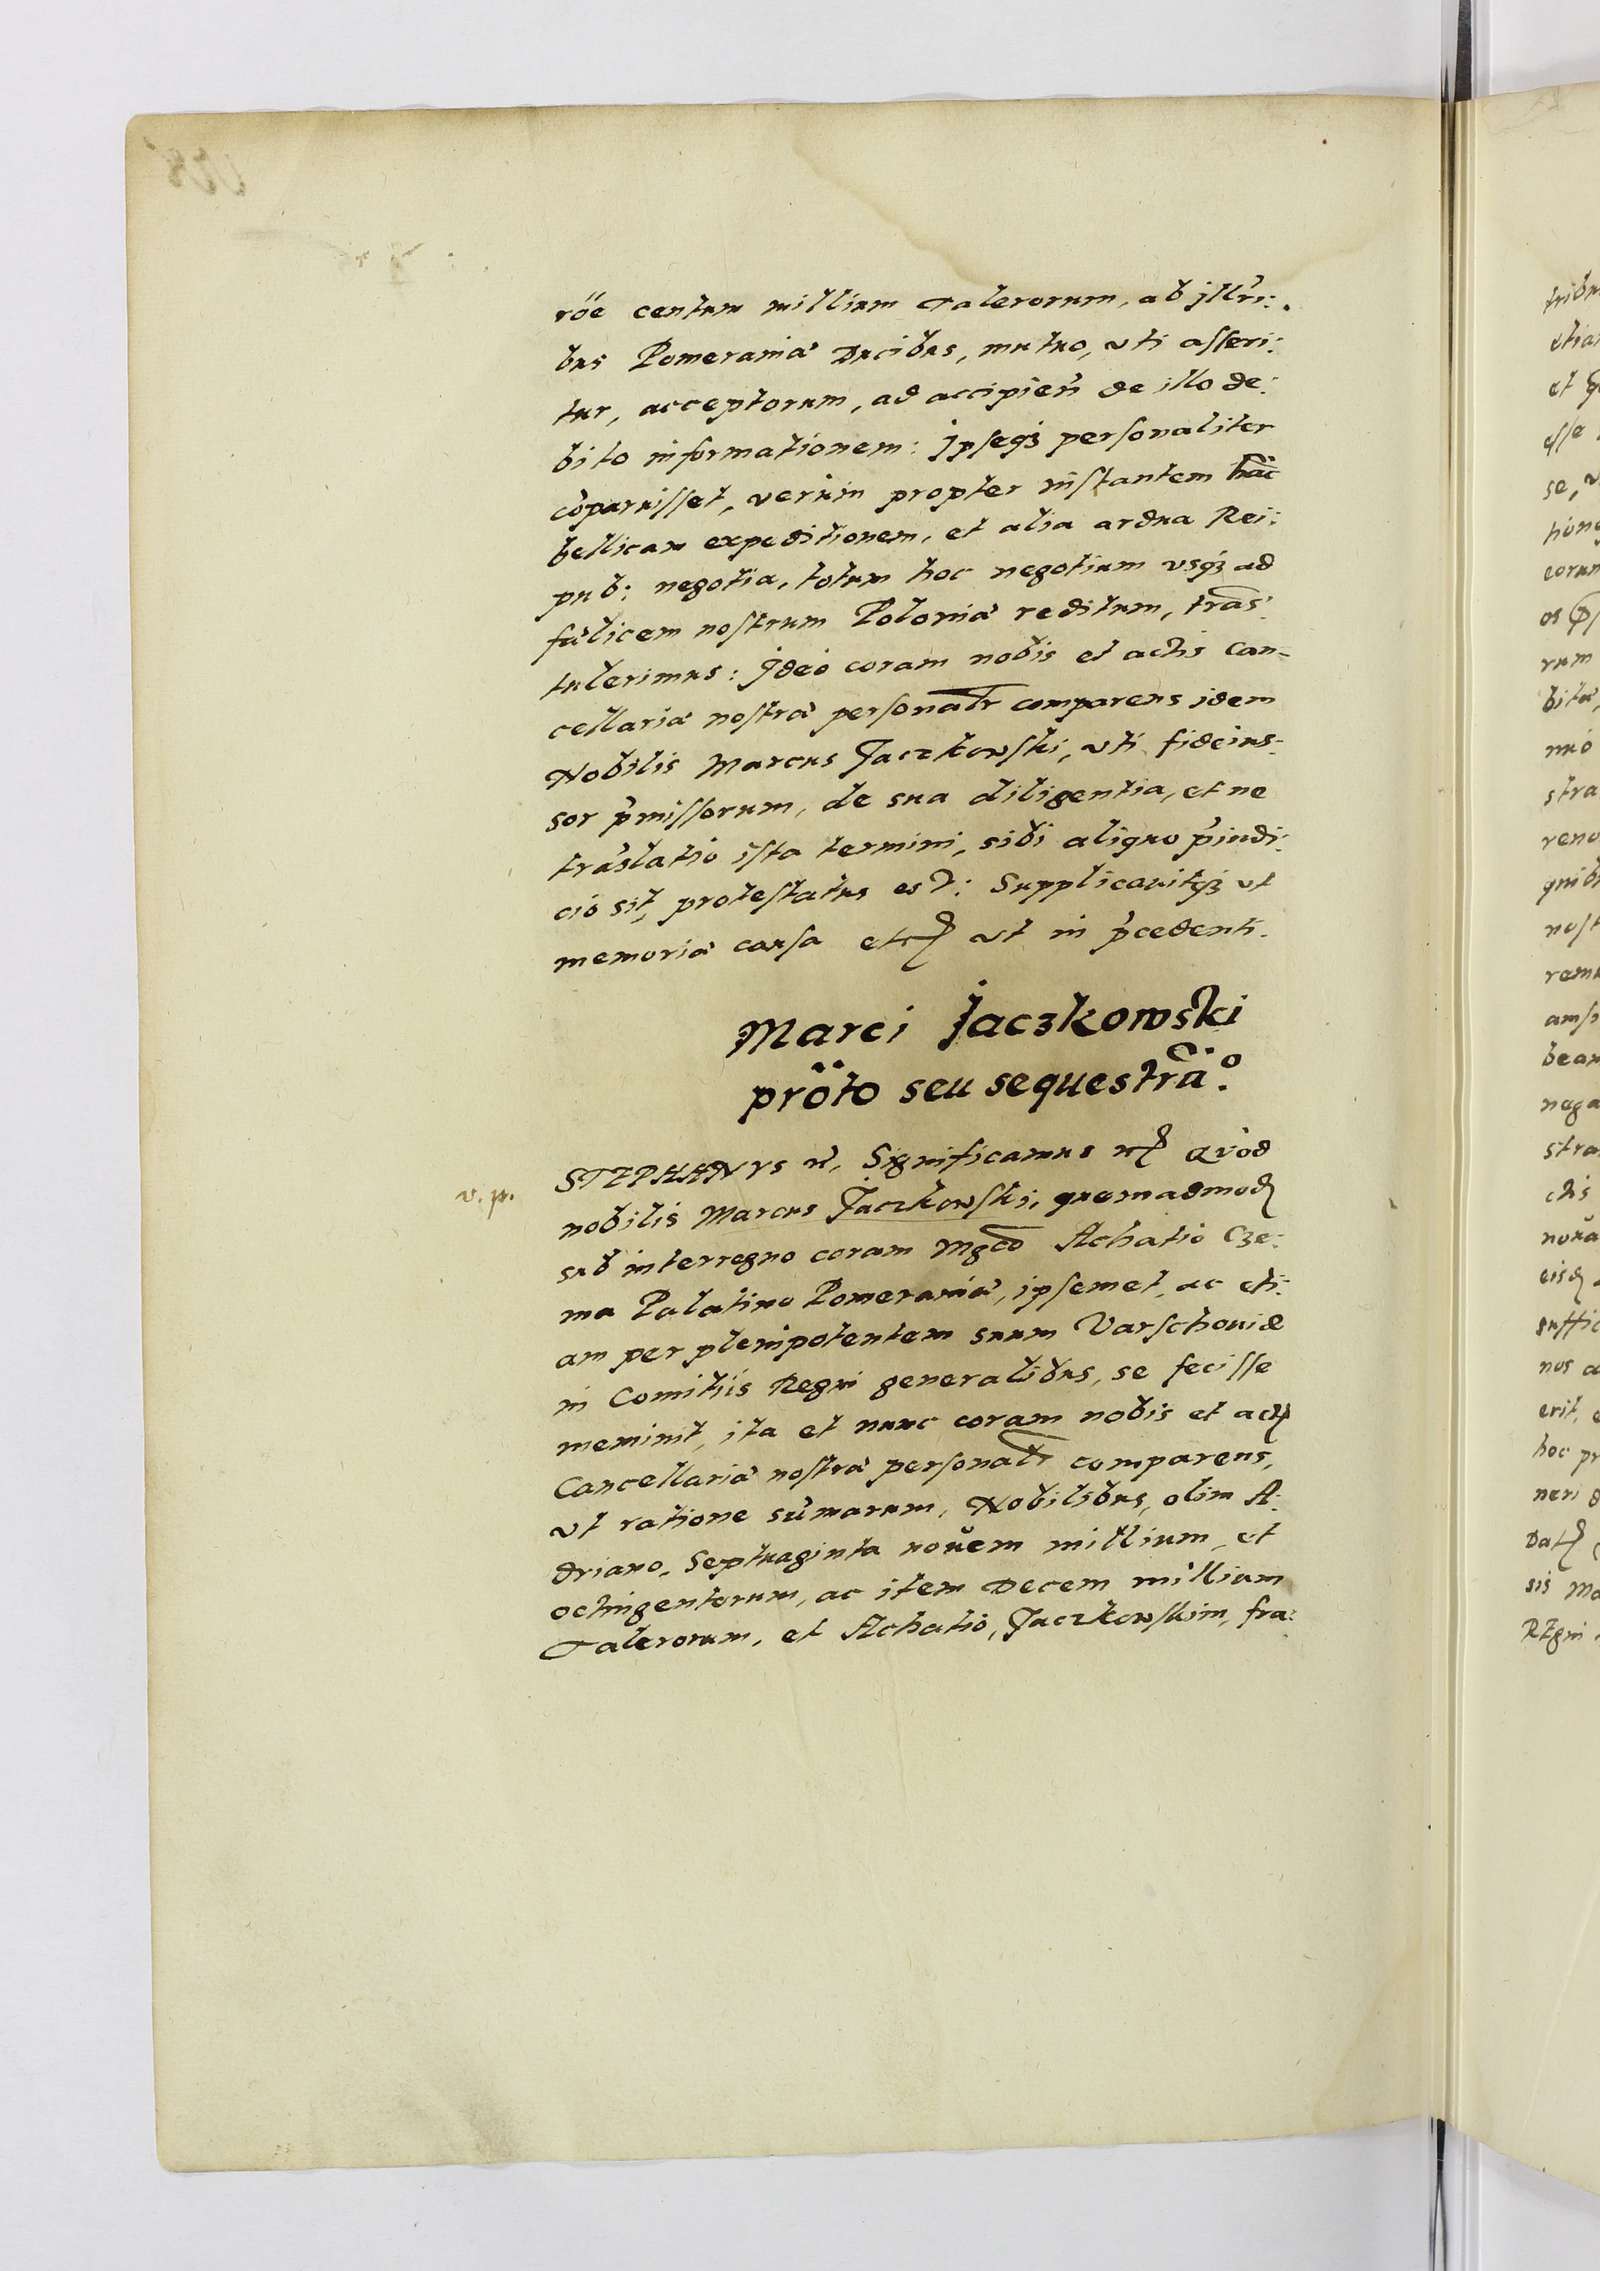 rõe centum millium Talerorum, ab jllri:
bus Pomeraniæ Ducibus, mutuo, vti asseri:
tur, acceptorum, ad accipien̄ de illo de:
bito informationem: jpseqз personaliter
cōparuisset, verùm propter instantem hāc
bellicam expeditionem, et alia ardua Rei:
pub: negotia, totum hoc negotium vsqз ad
fælicem nostrum Poloniæ reditum, trās:
tulerimus: jdeò coram nobis et actis Can-
cellariæ nostræ personalr̄ comparens idem
Nobilis Marcus Jaczkowski, vti fideius-
sor p̄missorum, de sua diligentia, et ne
trāslatio ista termini, sibi aliquo p̄iudi:
cio sit, protestatus est: Supplicauitqз vt
memoriæ causa etc. vt in p̄cedenti.
Marci Jaczkowski
prōto seu sequestrāo.
v. p.
STEPHANVS etc. Significamus etc. Quòd
nobilis Marcus Jaczkowski, quemadmodʒ
sub interregno coram Mgco Achatio Cze:
ma Palatino Pomeraniæ, ipsemet, ac eti:
am per plenipotentem suum Varschouiæ
in Comitiis Regni generalibus, se fecisse
meminit, ita et nunc coram nobis et actʒ
Cancellariæ nostræ personalr̄ comparens,
vt ratione sūmarum, Nobilibus, olim A:
driano, Septuaginta nouem millium, et
octingentorum, ac item Decem millium
Talerorum, et Achatio, Jaczkowskim, fra: